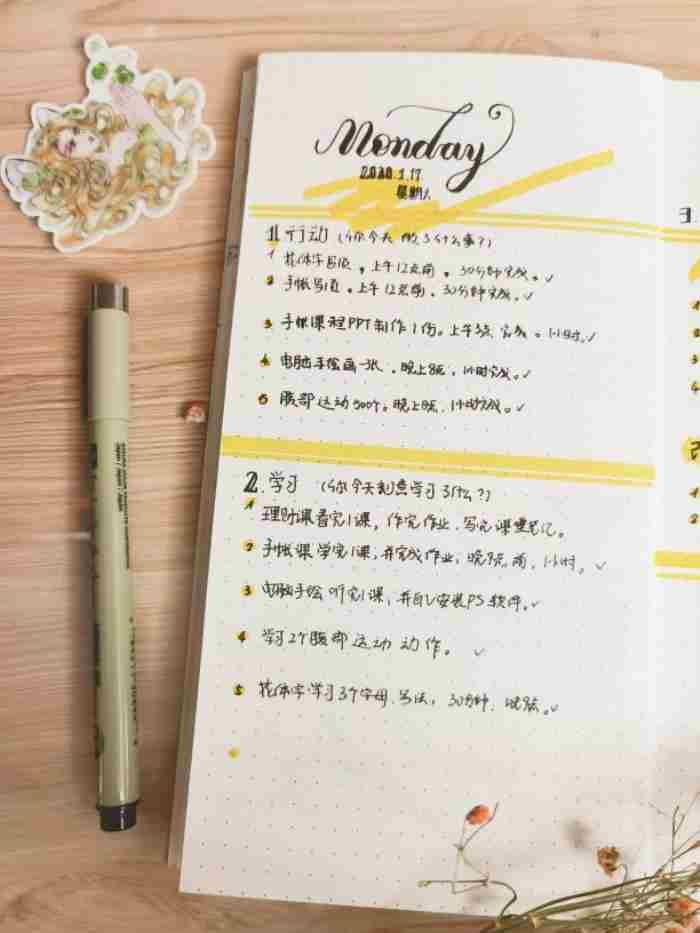 Monday
2020.1.17
1. 行动 (你今天做了什么事?)
1 花体字写1页。上午12点前。30分钟完成。✓
2 手帐写1页。上午12点前。30分钟完成。✓
3 手帐课程PPT制作1份。上午3点完成。1小时。✓
4 电脑手绘画一张。晚上8点。1小时完成。✓
5 腹部运动300个。晚上8点。1小时完成。✓
2. 学习 (你今天刻意学习了什么?)
1 理财课看完1课, 作完作业、写完课堂笔记。
2 手帐课学完1课, 并完成作业, 晚9点前, 1小时。✓
3 电脑手绘听完1课, 并自己安装PS软件。✓
4 学习2个腹部运动动作。✓
5 花体字学习3个字母写法, 30分钟、晚上。✓